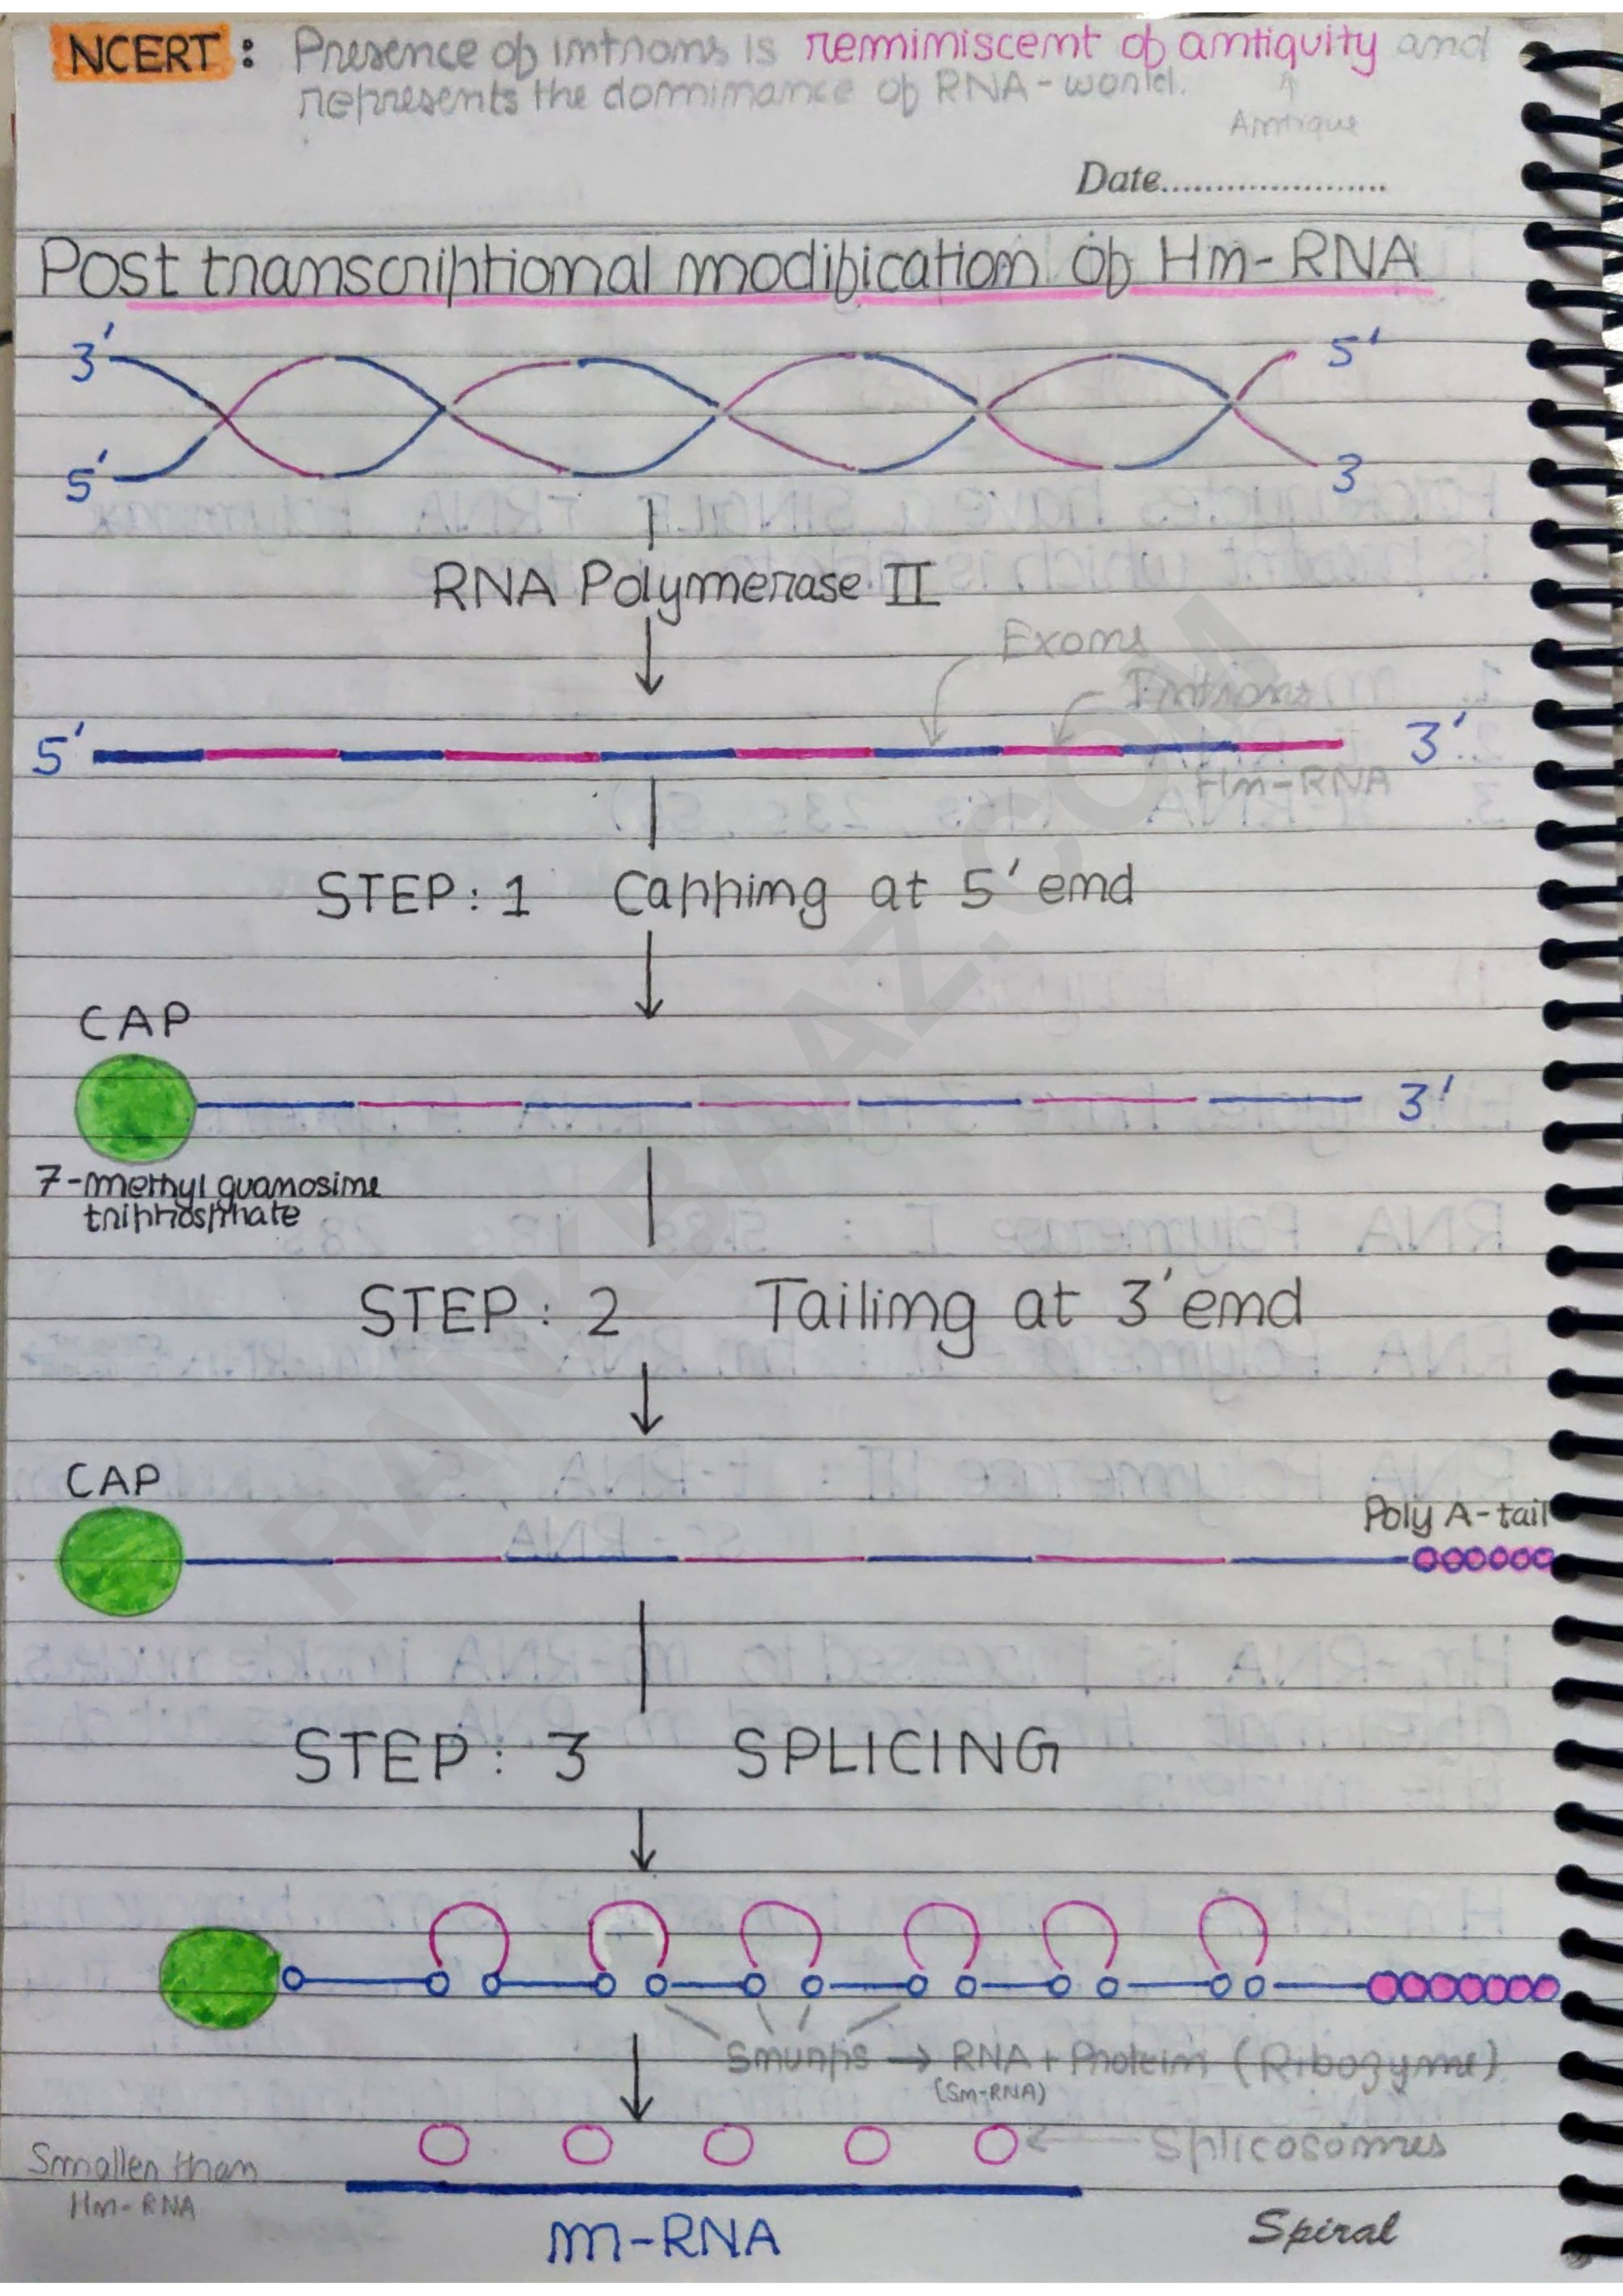 NCERT : Presence of introns is reminiscent of antiquity and
represents the dominance of RNA-world.
↑
Antique
Date......................
Post transcriptional modification of Hn-RNA
3' 5'
5' 3
RNA Polymerase II
Exons
Introns
5' 3'
Hn-RNA
STEP: 1 Capping at 5' end
CAP
3'
7-methyl guanosine
triphosphate
STEP: 2 Tailing at 3' end
CAP
Poly A-tail
STEP: 3 SPLICING
Snurps → RNA + Protein (Ribozyme)
(Sn-RNA)
Splicosomes
Smaller than
Hn-RNA
m-RNA
Spiral
RANKBAAZ.COM